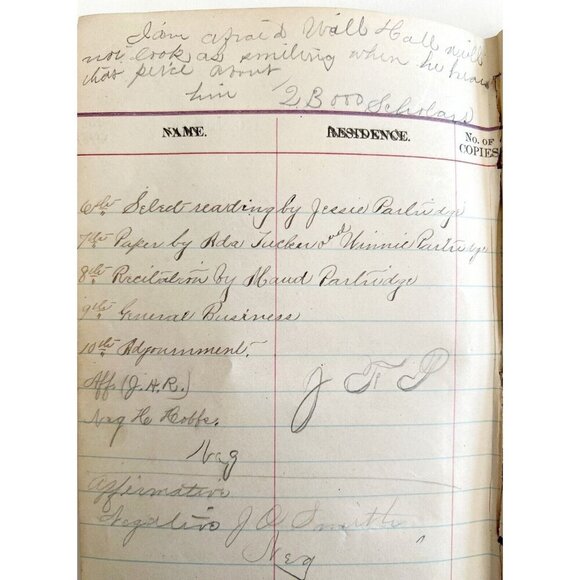 I am afraid Will Hall will
not look as smiling when he hears
that piece about
him 2 Books Scholars
NAME. RESIDENCE. No. OF COPIES
6th Select reading by Jessie Partridge
7th Paper by Ada Tucker and Winnie Partridge
8th Recitation by Maud Partridge
9th General Business
10th Adjournment.
Aff. (J.A.R.) J F P
Neg H. Hobbs.
Neg
Affirmative
Negative J O Smith
Neg